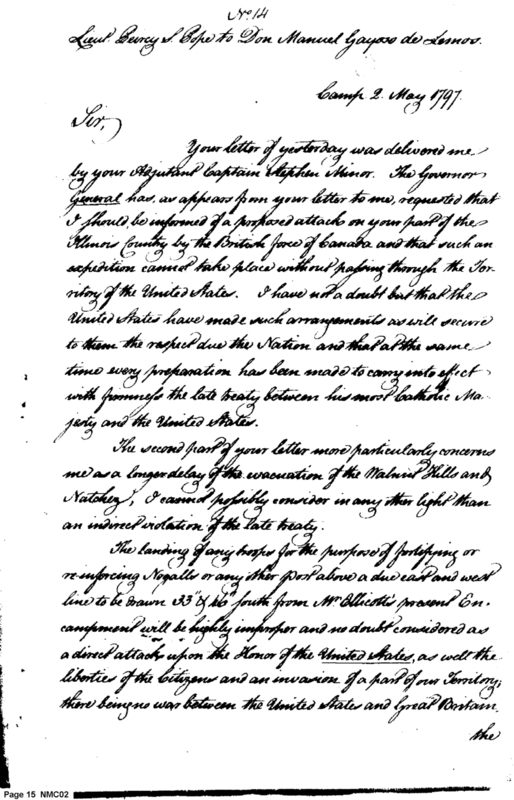 No. 14
Lieut. Peircy S. Pope to Don Manuel Gayoso de Lemos.
Camp 2. May 1797.
Sir,
Your letter of yesterday was delivered me
by your Adjutant Captain Stephen Minor. The Governor
General has, as appears from your letter to me, requested that
I should, be informed of a proposed attack on your part of the
Illinois Country by the British force of Canada and that such an
expedition cannot take place without passing through the Ter-
ritory of the United States. I have not a doubt but that the
United States have made such arrangements as will secure
to them the respect due the Nation and that at the same
time every preparation has been made to carry into effect
with firmness the late treaty between his most Catholic Ma-
jesty and the United States.
The second part of your letter more particularly concerns
me as a longer delay of the evacuation of the Walnut Hills and
Natchez, I cannot possibly consider in any other light than
an indirect violation of the late treaty.
The landing of any troops for the purpose of fortifying or
re-inforcing Nogalls or any other Post above a due east and west
line to be drawn south from Mr. Ellicott's present En-
campment will be highly improper and no doubt considered as
a direct attack upon the Honor of the United States, as well the
liberties of the Citizens and an invasion of a part of our Territory;
there being no war between the United States and Great Britain.
the
Page 15 NMC02